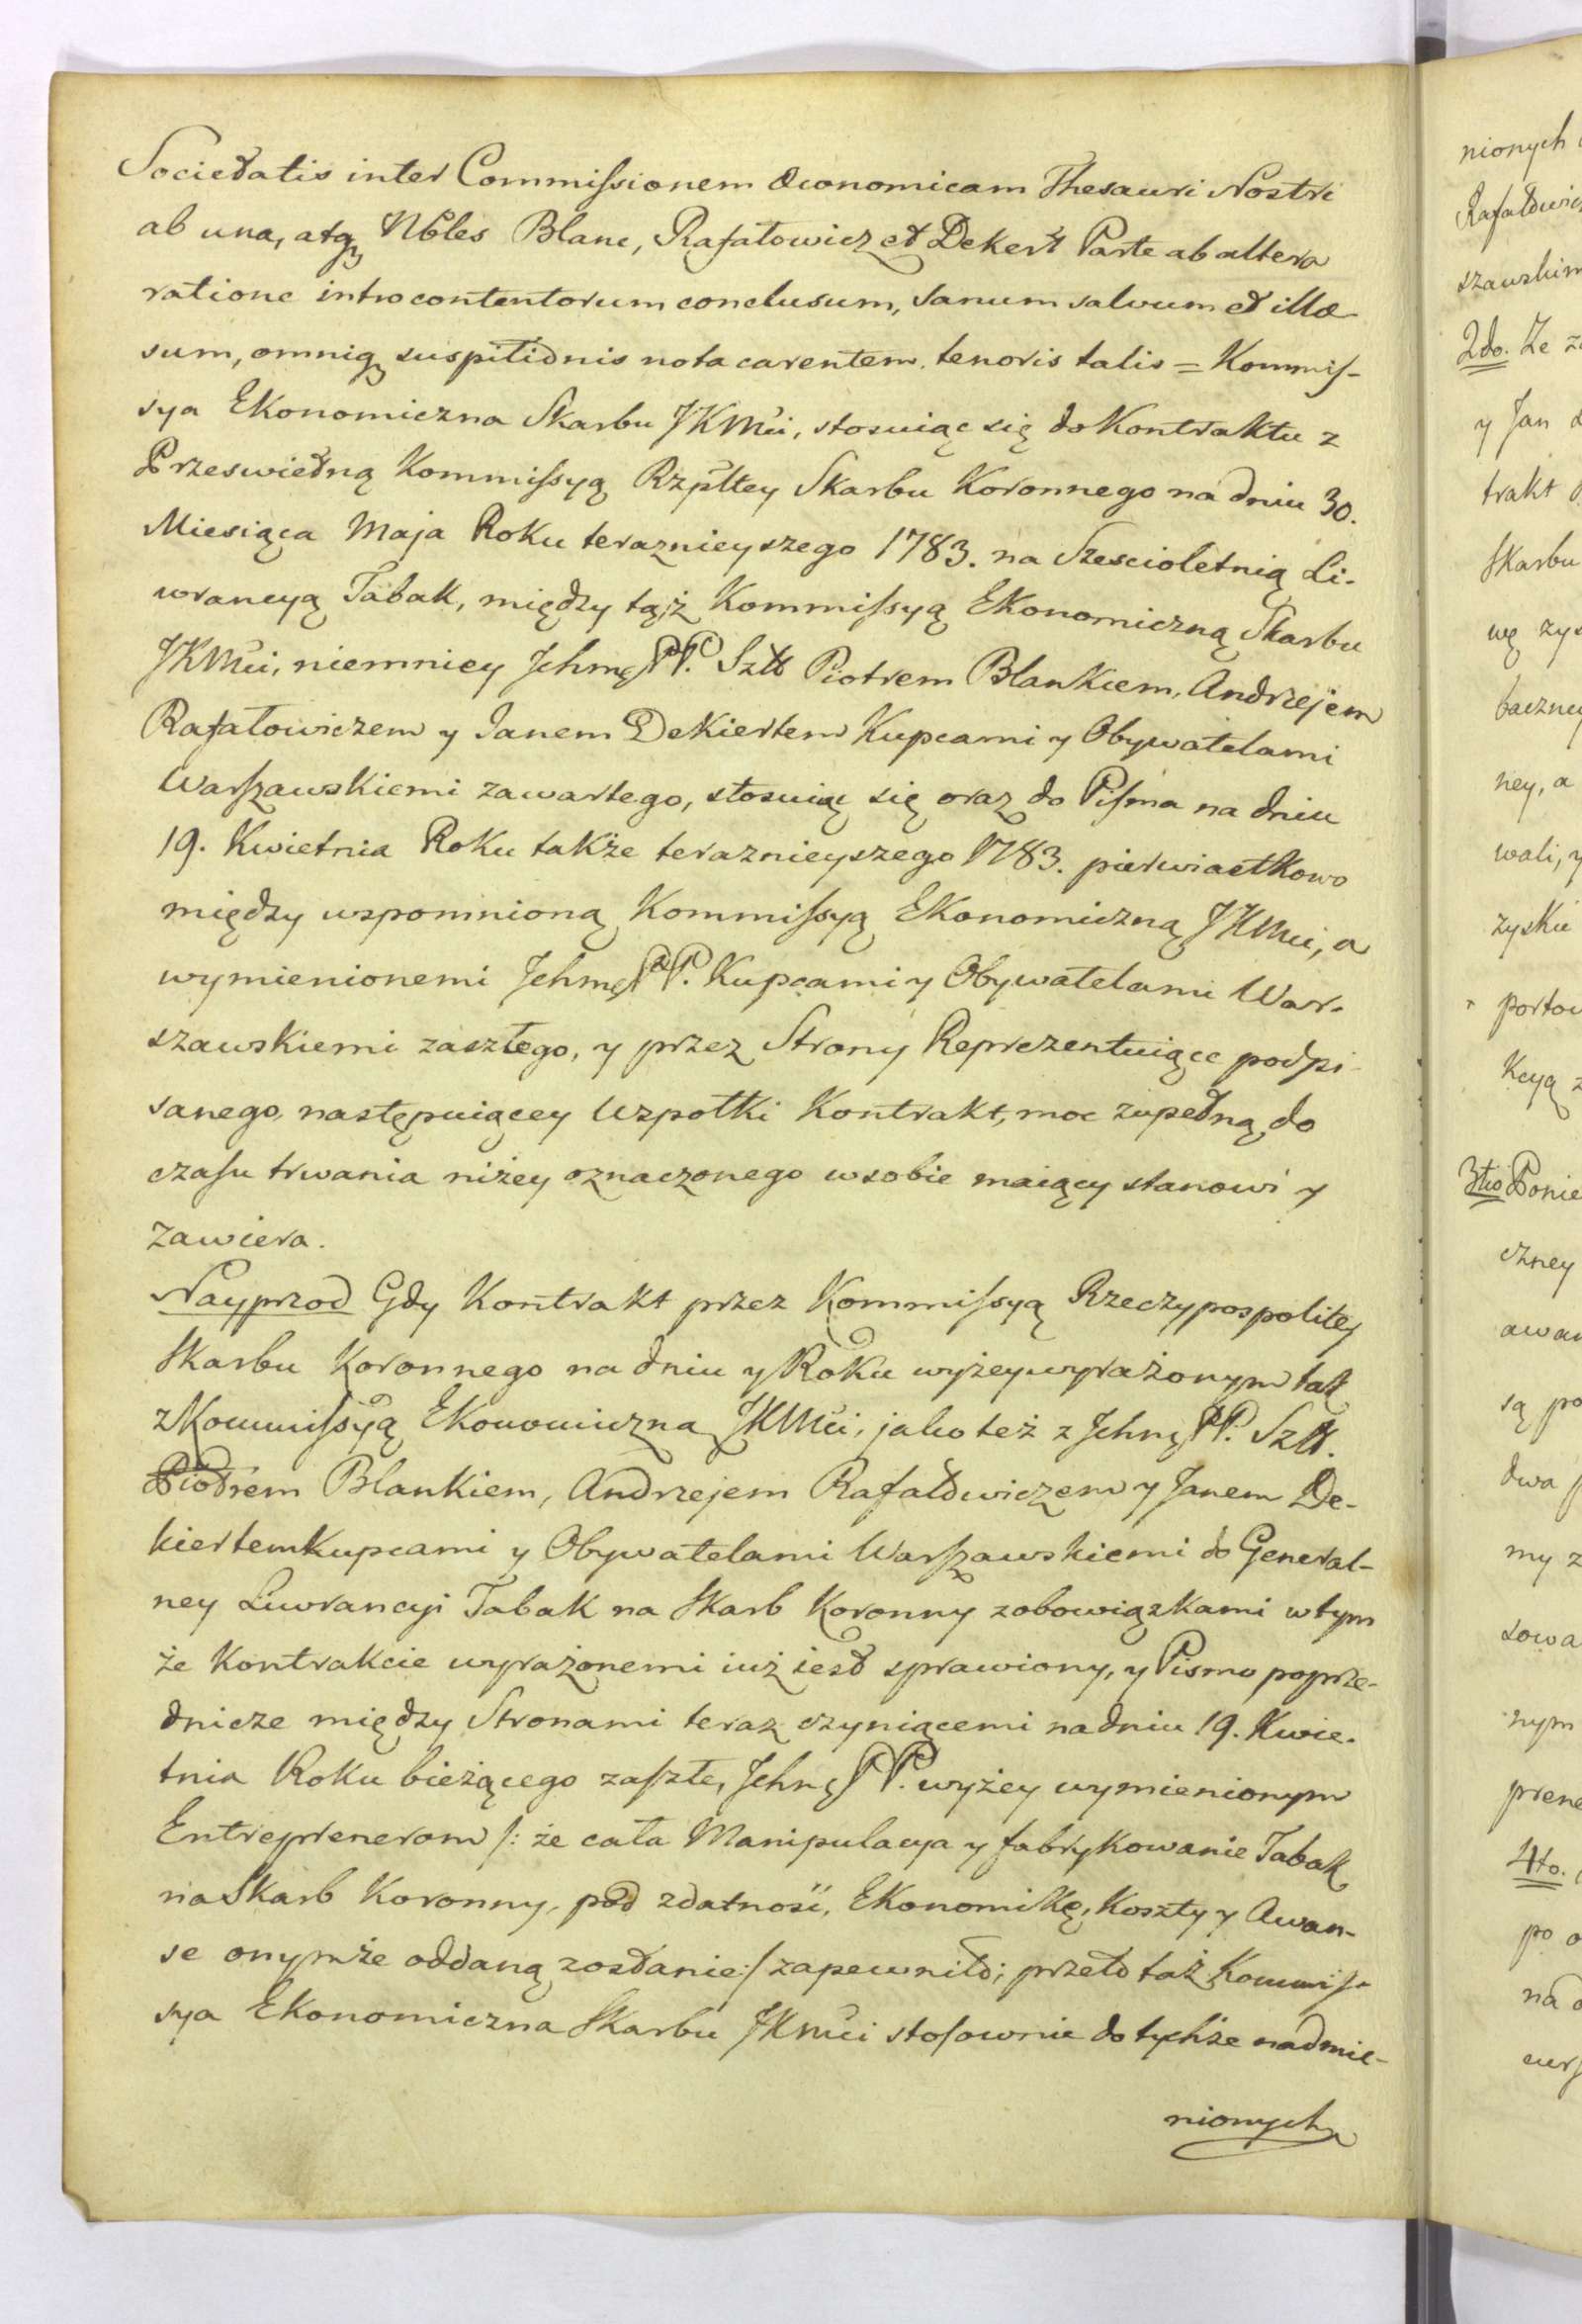 Societatis inter Commiſsionem Œconomicam Thesauri Nostri
ab una, atq Nbles Blanc, Rafałowicz et Dekert Parte ab altera
ratione introcontentorum conclusum, sanum salvum et illœ-
sum, omniq suspitionis nota carentem. tenoris talis = Kommiſ-
sya Ekonomiczna Skarbu JKMci, stosuiąc się do Kontraktu z
Przeswietną Kommiſsyą Rzpltey Skarbu Koronnego na dniu 30.
Miesiąca Maja Roku teraznieyszego 1783. na Szescioletnią Li-
wrancyą Tabak, między tąż Kommiſsyą Ekonomiczną Skarbu
JKMci, niemniey Jchmę PP. Sztt Piotrem Blankiem, Andrzejem
Rafałowiczem y Janem Dekiertem Kupcami y Obywatelami
Warſzawskiemi zawartego, stosuiąc się oraz do Piſma na dniu
19. Kwietnia Roku także teraznieyszego 1783. pierwiastkowo
między wspomnioną Kommiſsyą Ekonomiczną JKMci, a
wymienionemi Jchmę PP. Kupcami y Obywatelami War-
szawskiemi zaszłego, y przez Strony Reprezentuiące podpi-
sanego, następuiącey Wspołki Kontrakt, moc zupełną do
czaſu trwania niżey oznaczonego w sobie maiący stanowi y
zawiera.
Nayprzod Gdy Kontrakt przez Kommiſsyą Rzeczypospolitey
Skarbu Koronnego na dniu y Roku wyżeywyrażonym tak
z Kommiſsyą Ekonomiczną JKMci, jako też z Jchmę PP. Sztt.
Piotrem Blankiem, Andrzejem Rafałowiczem y Janem De-
kiertem Kupcami y Obywatelami Warſzawskiemi do General-
ney Liwrancyi Tabak na Skarb Koronny zobowiązkami w tym
że Kontrakcie wyrażonemi iuż iest sprawiony, y Pismo poprze-
dnicze między Stronami teraz czyniącemi na dniu 19. Kwie-
tnia Roku bieżącego zaſzłe, Jchmę PP. wyżey wymienionym
Entreprenerom /: że cała Manipulacya y fabrykowanie Tabak
na Skarb Koronny, pod zdatność, Ekonomikę, Koszty y Awan-
se onymże oddaną zostanie :/ zapewniło; przeto taż Kommiſ-
sya Ekonomiczna Skarbu JKMci stoſownie do tychże nadmie-
nionych
nionych
Rafałowicz
szawskim
2do. Że
y Jan
trakt
Skarbu
wę
baczney
ney, a
wali, y
zyskie
portow
kcyą
3tio Ponie
czney
są po
dwa
my z
sowa
nym
4to.
po
na